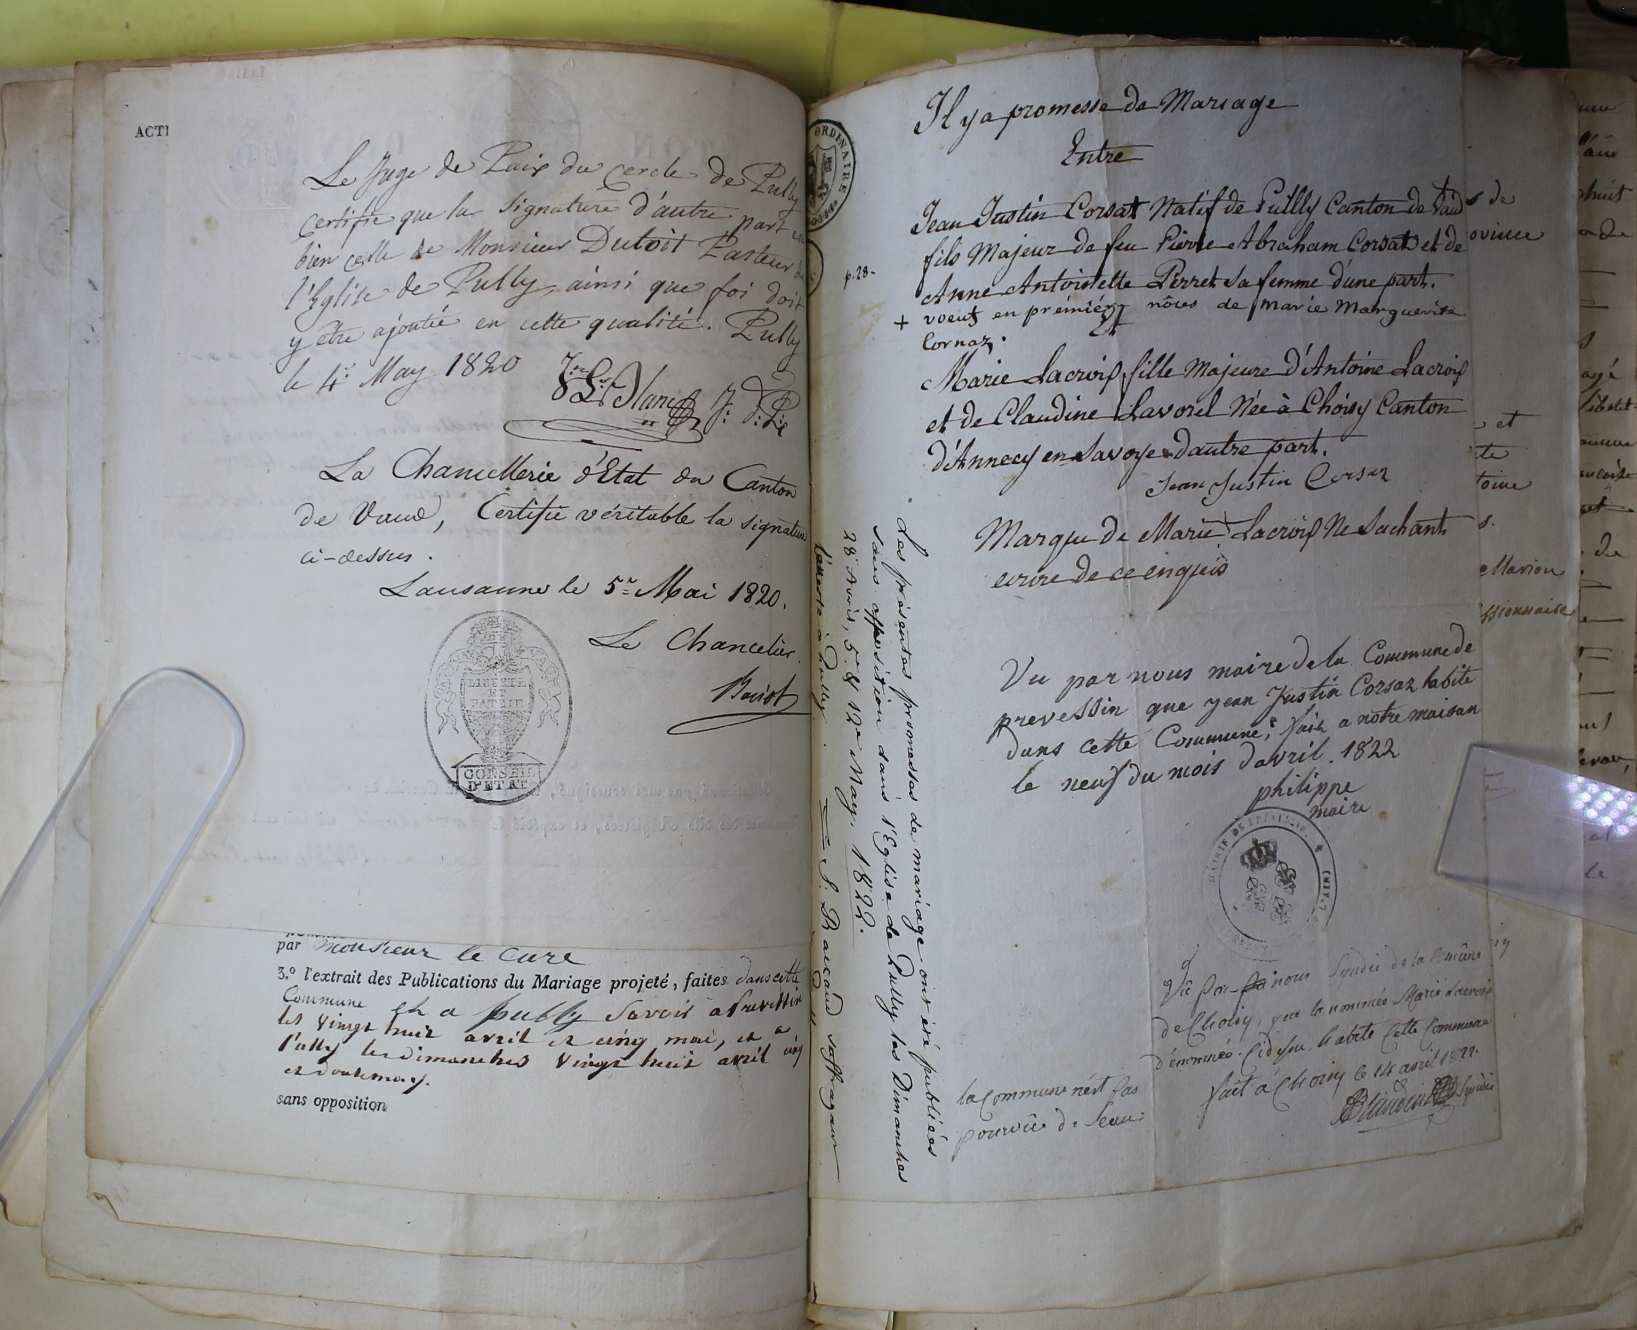 ACTE
Le Juge de Paix du cercle de Pully
certifie que la Signature d'autre part est
bien celle de Monsieur Dutoit Pasteur de
l'Eglise de Pully, ainsi que foi doit
y être ajoutée en cette qualité. Pully
le 4e May 1820
Blanc J: d: P:
La Chancellerie d'Etat du Canton
de Vaud, Certifie véritable la signature
ci-dessus.
Lausanne le 5e Mai 1820.
Le Chancelier.
Boisot
LIBERTÉ
ET
PATRIE
CONSEIL
D'ETAT
par Monsieur le Curé
3.º l'extrait des Publications du Mariage projeté, faites dans cette
Commune et a pully Savoir à Prevessin
les vingt huit avril et cinq mai, et a
Pully les dimanches vingt huit avril cinq
et douze may.
sans opposition
ORDINAIRE
Il y a promesse de Mariage
Entre
Jean Justin Corsat Natif de Pullly Canton de Vaud +
fils Majeur de feu Pierre Abraham Corsat et de
p. 28-
Anne Antoinette Perret sa femme d'une part.
+ voeuf en premiér nôces de Marie Marguerite
Cornaz.
Et
Marie Lacroix, fille Majeure d'Antoine Lacroix
et de Claudine Lavorel Née à Choisy Canton
d'Annecy en Savoye d'autre part.
Jean Justin Corsaz
Marque de Marie Lacroix Ne Sachant
ecrire de ce enquis
Vu par nous maire de la Commune de
prevessin que jean Justin Corsaz habite
dans cette Commune, fait a notre maison
le neuf du mois d'avril. 1822
philippe
maire
MAIRIE DE PREVESSIN
Vû par nous Syndic de la Comûne
de Choisy, que la nommée Marie Lacroix
dénommée Cidessu habite Cette Commune
fait à Choisy ce 14 avril 1822.
Syndic
la Commune n'est pas
pourvûe de Seau
Les présentes promesses de mariage ont été publiées
sans opposition dans l'Eglise de Pully les Dimanches
28e Avril, 5e & 12e May. 1822.
L'atteste à Pully. S. Baccaud suffragant
s de
ovince
et
te
toine
s.
e Marion
ssionnaire